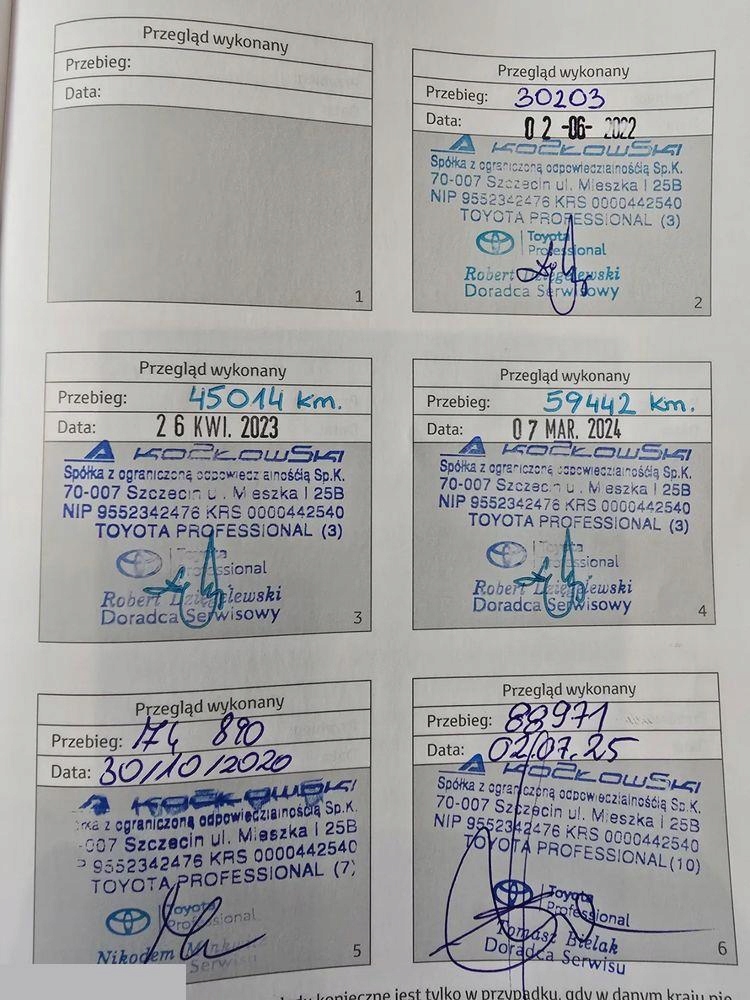 Przegląd wykonany
Przebieg:
Data:
1
Przegląd wykonany
Przebieg: 30203
Data: 02 -06- 2022
KOZŁOWSKI
Spółka z ograniczoną odpowiedzialnością Sp.K.
70-007 Szczecin ul. Mieszka I 25B
NIP 9552342476 KRS 0000442540
TOYOTA PROFESSIONAL (3)
Toyota
Professional
Robert Dzięgelewski
Doradca Serwisowy
2
Przegląd wykonany
Przebieg: 45014 km.
Data: 26 KWI. 2023
KOZŁOWSKI
Spółka z ograniczoną odpowiedzialnością Sp.K.
70-007 Szczecin u. Mieszka I 25B
NIP 9552342476 KRS 0000442540
TOYOTA PROFESSIONAL (3)
Toyota
Professional
Robert Dzięgelewski
Doradca Serwisowy
3
Przegląd wykonany
Przebieg: 59442 km.
Data: 07 MAR. 2024
KOZŁOWSKI
Spółka z ograniczoną odpowiedzialnością Sp.K.
70-007 Szczecin u. Mieszka I 25B
NIP 9552342476 KRS 0000442540
TOYOTA PROFESSIONAL (3)
Toyota
Professional
Robert Dzięgelewski
Doradca Serwisowy
4
Przegląd wykonany
Przebieg: 174 890
Data: 30/10/2020
KOZŁOWSKI
z ograniczoną odpowiedzialnością Sp.K.
-007 Szczecin ul. Mieszka I 25B
P 9552342476 KRS 0000442540
TOYOTA PROFESSIONAL (7)
Toyota
Professional
Nikodem
Serwisu
5
Przegląd wykonany
Przebieg: 88971
Data: 02/07.25
KOZŁOWSKI
Spółka z ograniczoną odpowiedzialnością Sp.K.
70-007 Szczecin ul. Mieszka I 25B
NIP 9552342476 KRS 0000442540
TOYOTA PROFESSIONAL (10)
Toyota
Professional
Tomasz Bielak
Doradca Serwisu
6
konieczne jest tylko w przypadku, gdy w danym kraju nie